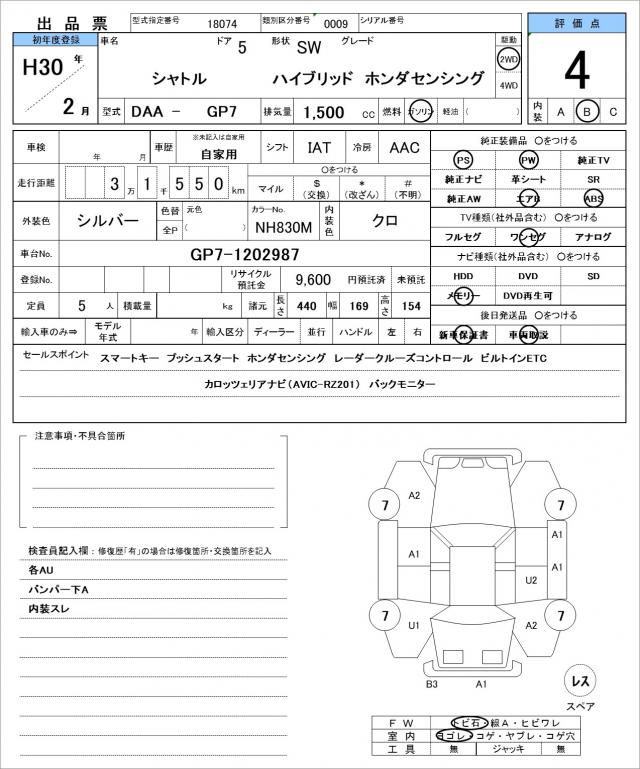 出 品 票 型式指定番号 18074 類別区分番号 0009 シリアル番号
評 価 点
初年度登録 車名 ドア 5 形状 SW グレード 駆動
H30 年 シャトル ハイブリッド ホンダセンシング 2WD 4
2 月 4WD
型式 DAA － GP7 排気量 1,500 cc 燃料 ガソリン 軽油 ( ) 内装 A B C
車検 年 月 車歴 ※未記入は自家用 自家用 シフト IAT 冷房 AAC
純正装備品 〇をつける
走行距離 3 万 1 千 5 5 0 km 〇をつける
マイル $ (交換) * (改ざん) # (不明)
PS PW 純正TV
純正ナビ 革シート SR
純正AW エアB ABS
外装色 シルバー 色替 元色 全P ( カラーNo. NH830M 内装色 クロ
TV種類(社外品含む) 〇をつける
フルセグ ワンセグ アナログ
車台No. GP7-1202987
ナビ種類(社外品含む) 〇をつける
登録No. リサイクル預託金 9,600 円預託済 未預託
HDD DVD SD
定員 5 人 積載量 kg 諸元 長さ 440 幅 169 高さ 154
メモリー DVD再生可
後日発送品 〇をつける
輸入車のみ⇒ モデル年式 年 輸入区分 ディーラー 並行 ハンドル 左 右
新車保証書 車両取説
セールスポイント スマートキー プッシュスタート ホンダセンシング レーダークルーズコントロール ビルトインETC
カロッツェリアナビ(AVIC-RZ201) バックモニター
注意事項・不具合箇所
検査員記入欄：修復歴「有」の場合は修復箇所・交換箇所を記入
各AU
バンパー下A
内装スレ
A2
7 7
A1
A1 A1
U2
7 7
U1 A2
B3 A1
レス
スペア
F W トビ石・線A・ヒビワレ
室 内 ヨゴレ・コゲ・ヤブレ・コゲ穴
工 具 無 ジャッキ 無